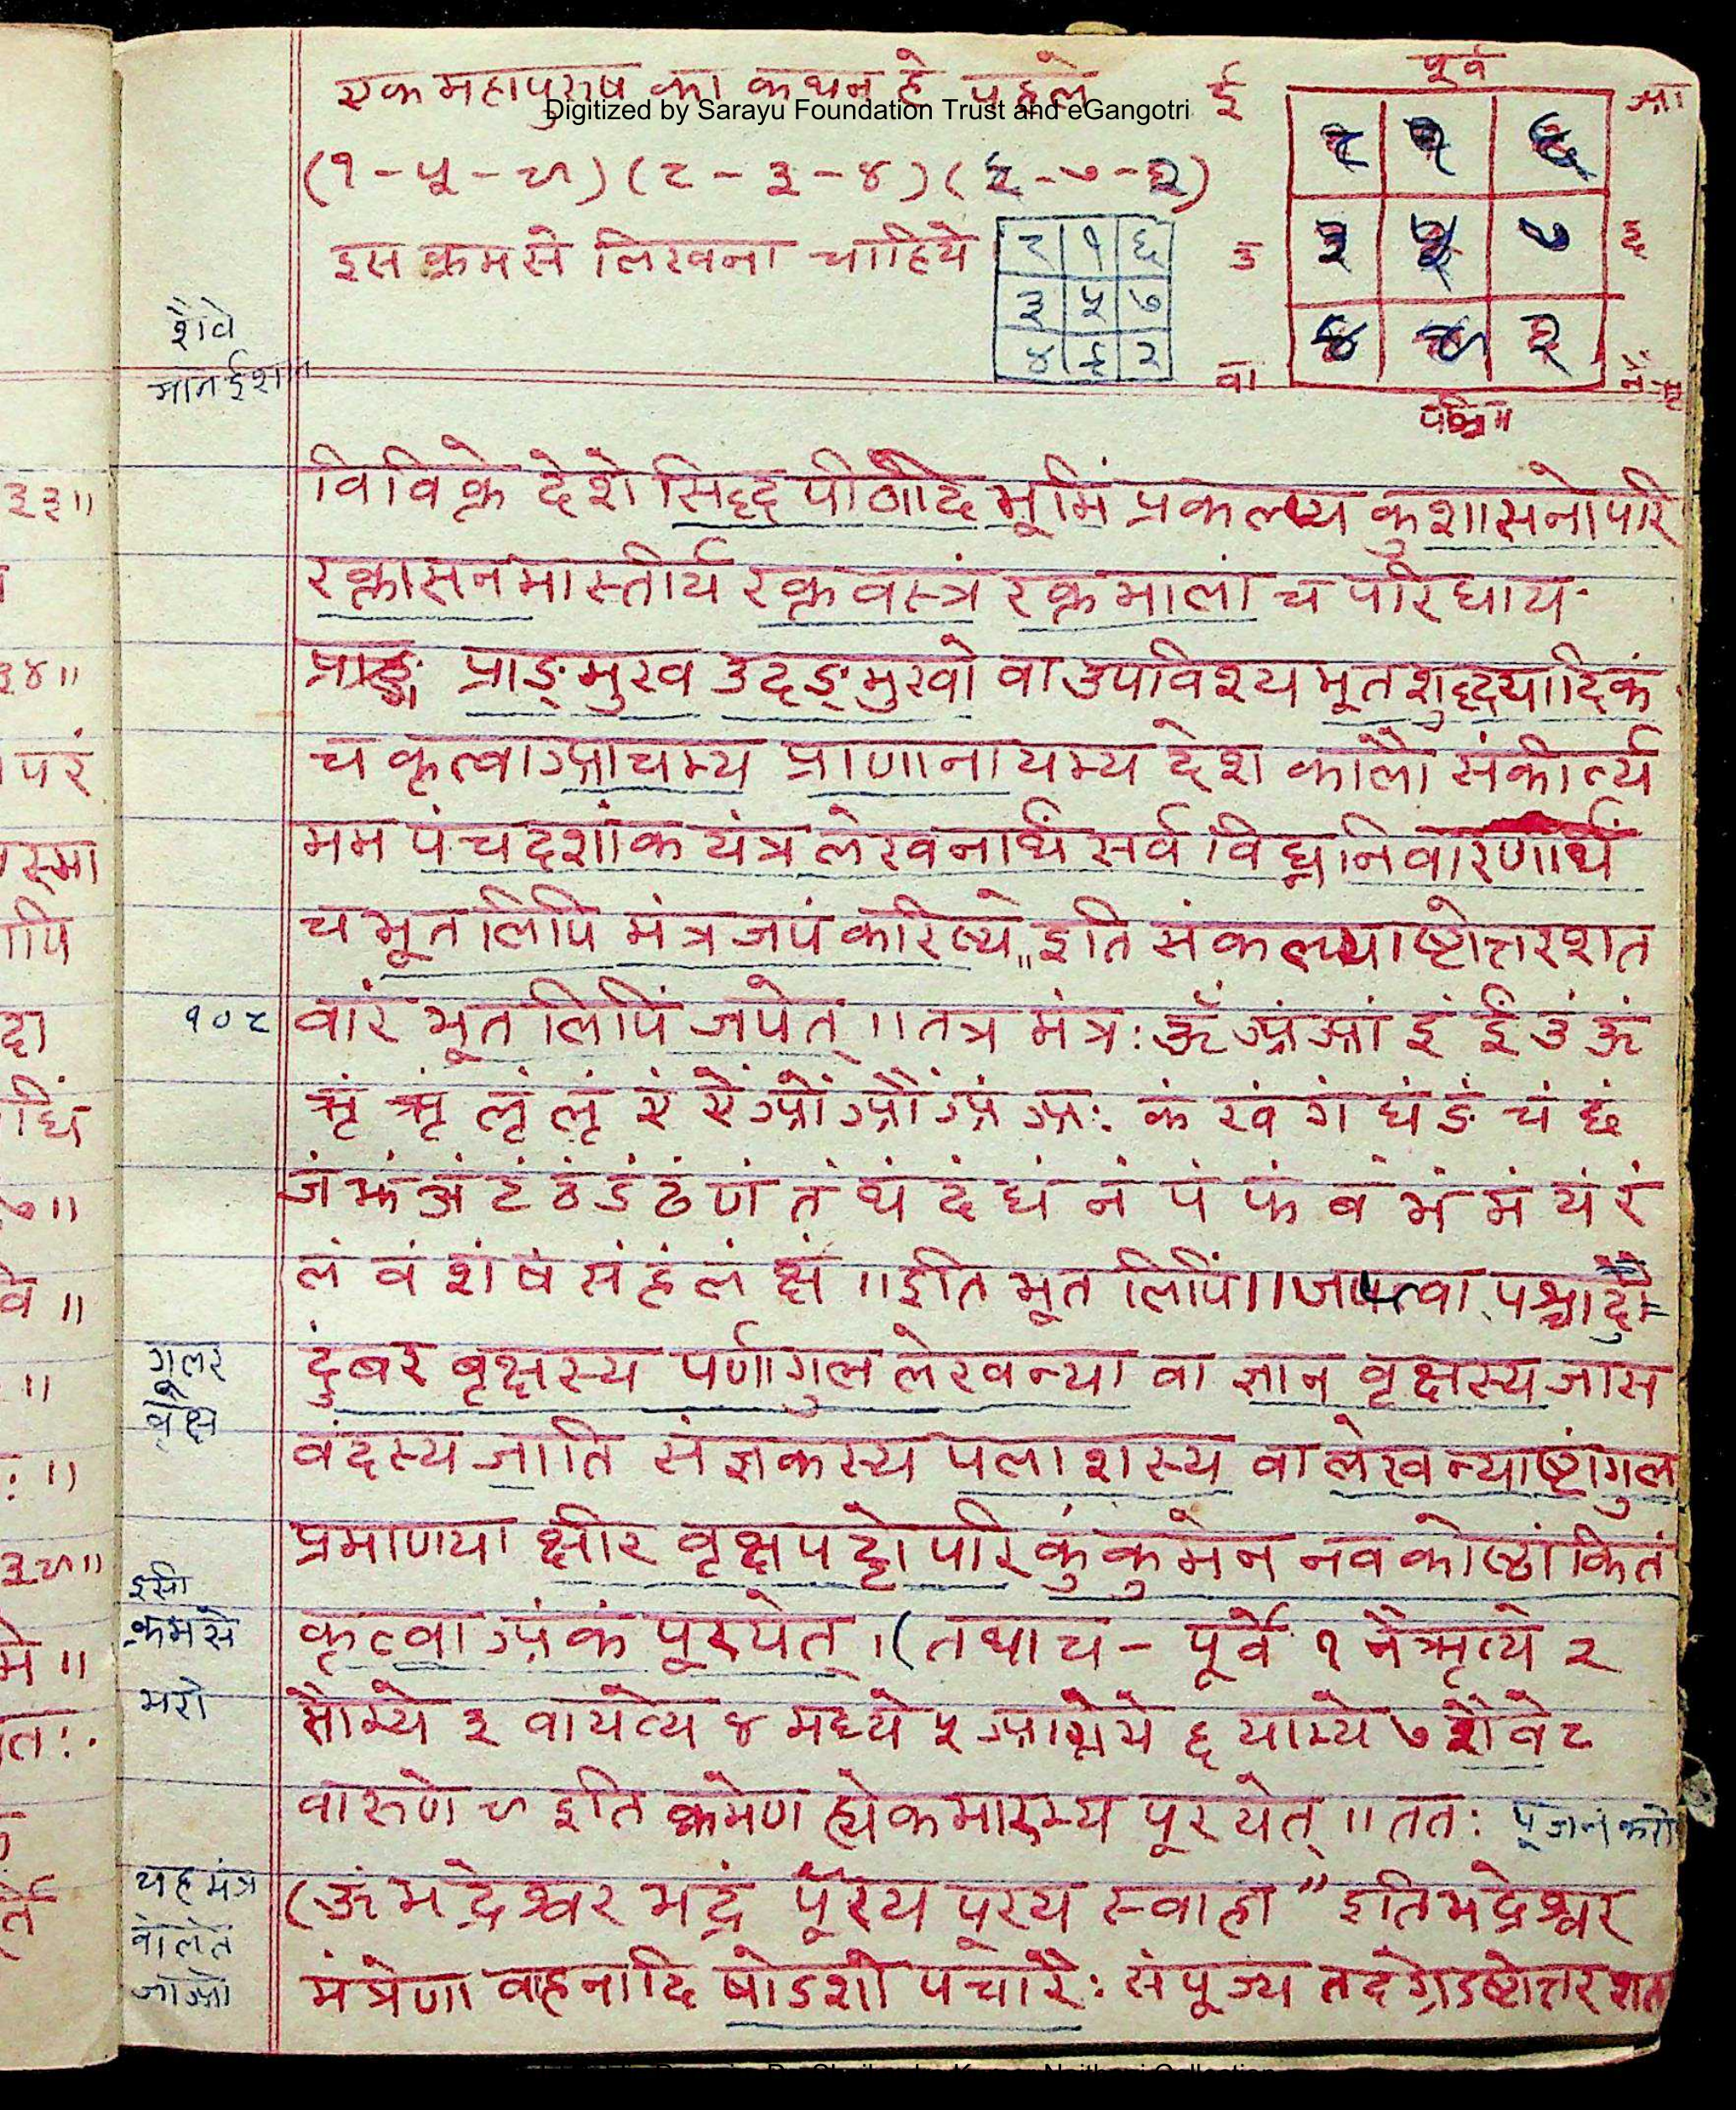 एक महापुरुष का कथन है पहले
Digitized by Sarayu Foundation Trust and eGangotri
(१-५-९) (८-३-४) (६-७-२)
इस क्रम से लिखना चाहिये
८ १ ६
३ ५ ७
४ ९ २
पूर्व
ई आ
८ १ ६
उ ३ ५ ७ द
४ ९ २
वा नैऋ
पश्चिम
शैवे
मान ईशान
विविक्ते देशे सिद्ध पीठादि भूमिं प्रकल्प्य कुशासनोपरि
रक्तासनमास्तीर्य रक्त वस्त्रं रक्त मालां च परिधाय
प्राङ्मुख उदङ्मुखो वा उपविश्य भूत शुद्धयादिकं
च कृत्वा आचम्य प्राणानायम्य देश कालौ संकीर्त्य
मम पंचदशांक यंत्र लेखनार्थं सर्व विघ्न निवारणार्थं
च भूत लिपि मंत्र जपं करिष्ये" इति संकल्प्याष्टोत्तरशत
१०८ वारं भूत लिपिं जपेत् ।। तत्र मंत्र: ॐ अं आं इं ईं उं ऊं
ऋं ॠं लृं लॄं एं ऐं ओं औं अं अ: कं खं गं घं ङं चं छं
जं झं ञं टं ठं डं ढं णं तं थं दं धं नं पं फं बं भं मं यं रं
लं वं शं षं सं हं लं क्षं ।। इति भूत लिपिं।। जप्त्वा पश्चादौ=
गूलर वृक्ष
दुंबर बृक्षस्य पर्णागुल लेखन्या वा ज्ञान वृक्षस्य जास
वंदस्य जाति संज्ञकस्य पलाशस्य वा लेखन्याष्टांगुल
प्रमाणया क्षीर वृक्ष पट्टोपरि कुंकुमेन नव कोष्ठांकितं
इसी क्रम से भरो
कृत्वा अंकं पूरयेत् । (तथा च - पूर्वे १ नैऋत्ये २
सौम्ये ३ वायव्ये ४ मध्ये ५ आग्नेये ६ याम्ये ७ शैवे ८
वारुणे ९ इति क्रमेण ह्येकमारभ्य पूरयेत् ।। तत: पूजन करो
यह मंत्र बोलते जाओ
(ॐ भद्रेश्वर भद्रं पूरय पूरय स्वाहा" इति भद्रेश्वर
मंत्रेणा वाहनादि षोडशो पचारै: संपूज्य तदग्रेऽष्टोत्तर शत